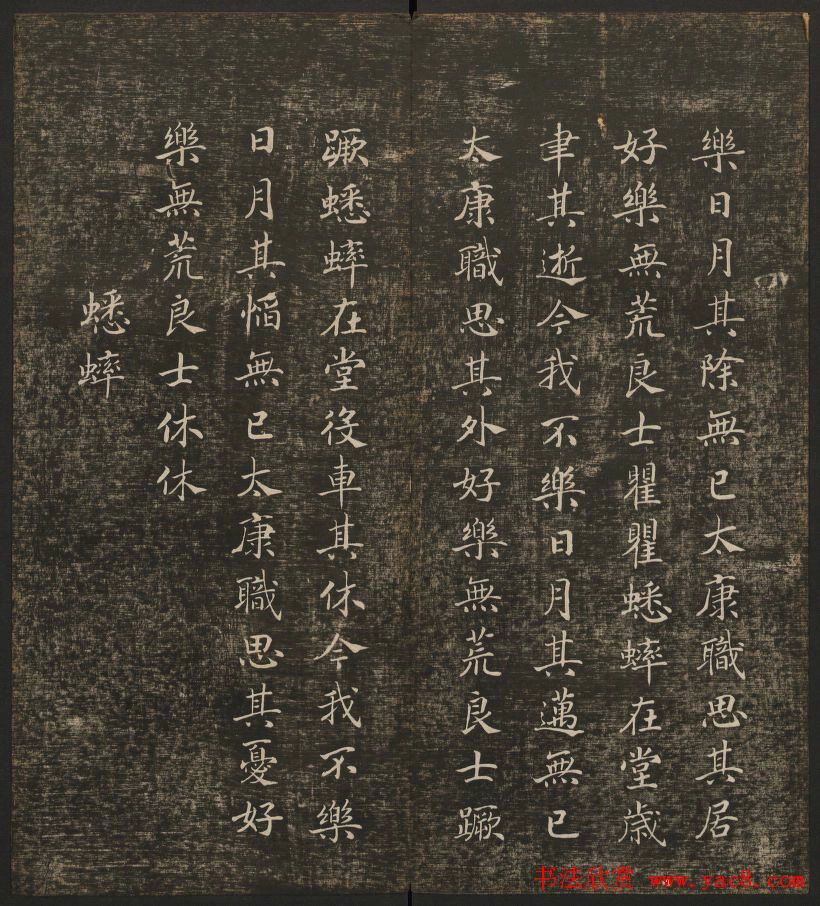 樂日月其除無已太康職思其居
好樂無荒良士瞿瞿蟋蟀在堂歲
聿其逝今我不樂日月其邁無已
太康職思其外好樂無荒良士蹶
蹶蟋蟀在堂役車其休今我不樂
日月其慆無已太康職思其憂好
樂無荒良士休休
蟋蟀
书法欣赏 www.yac8.com